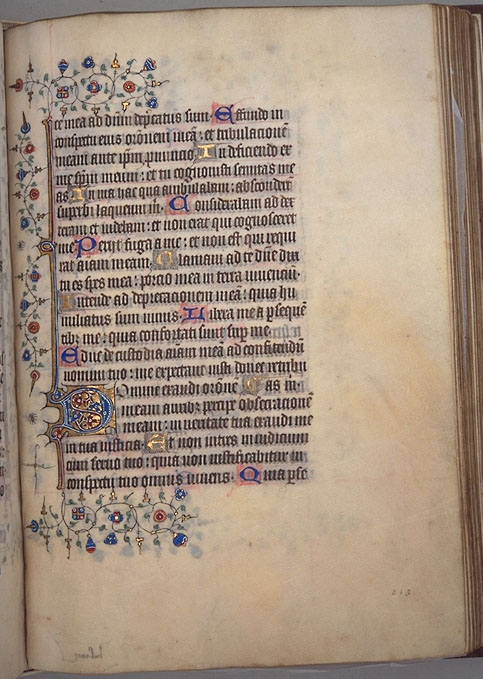 ce mea ad dnm depcatus sum. Effundo in
conspectu eius orōnem meā: et tribulacionē
meam ante ipm pnuncio. In deficiendo ex
me spm meum: et tu cognouisti semitas me
as. In uia hac qua ambulabam: absconderūt
superbi laqueum m. Considerabam ad dex
teram et uidebam: et non erat qui cognosceret
me. Perijt fuga a me: et non est qui requi
rat aīam meam. Clamaui ad te dñe dixi
tu es spes mea: porcio mea in terra uiuenciū.
Intende ad deprecacionem meā: quia hu
miliatus sum nimis. Libera me a psequen
tib; me: quia confortati sunt sup me.
Educ de custodia aīam meā ad confitendū
nomini tuo: me expectant iusti donec retribu
Domine exaudi orōnē meam aurib; percipe obsecracionē
meam: in ueritate tua exaudi me
in tua iusticia. Et non intres in iudicium
cum seruo tuo: quia non iustificabitur in
conspectu tuo omnis uiuens. Quia pse
213